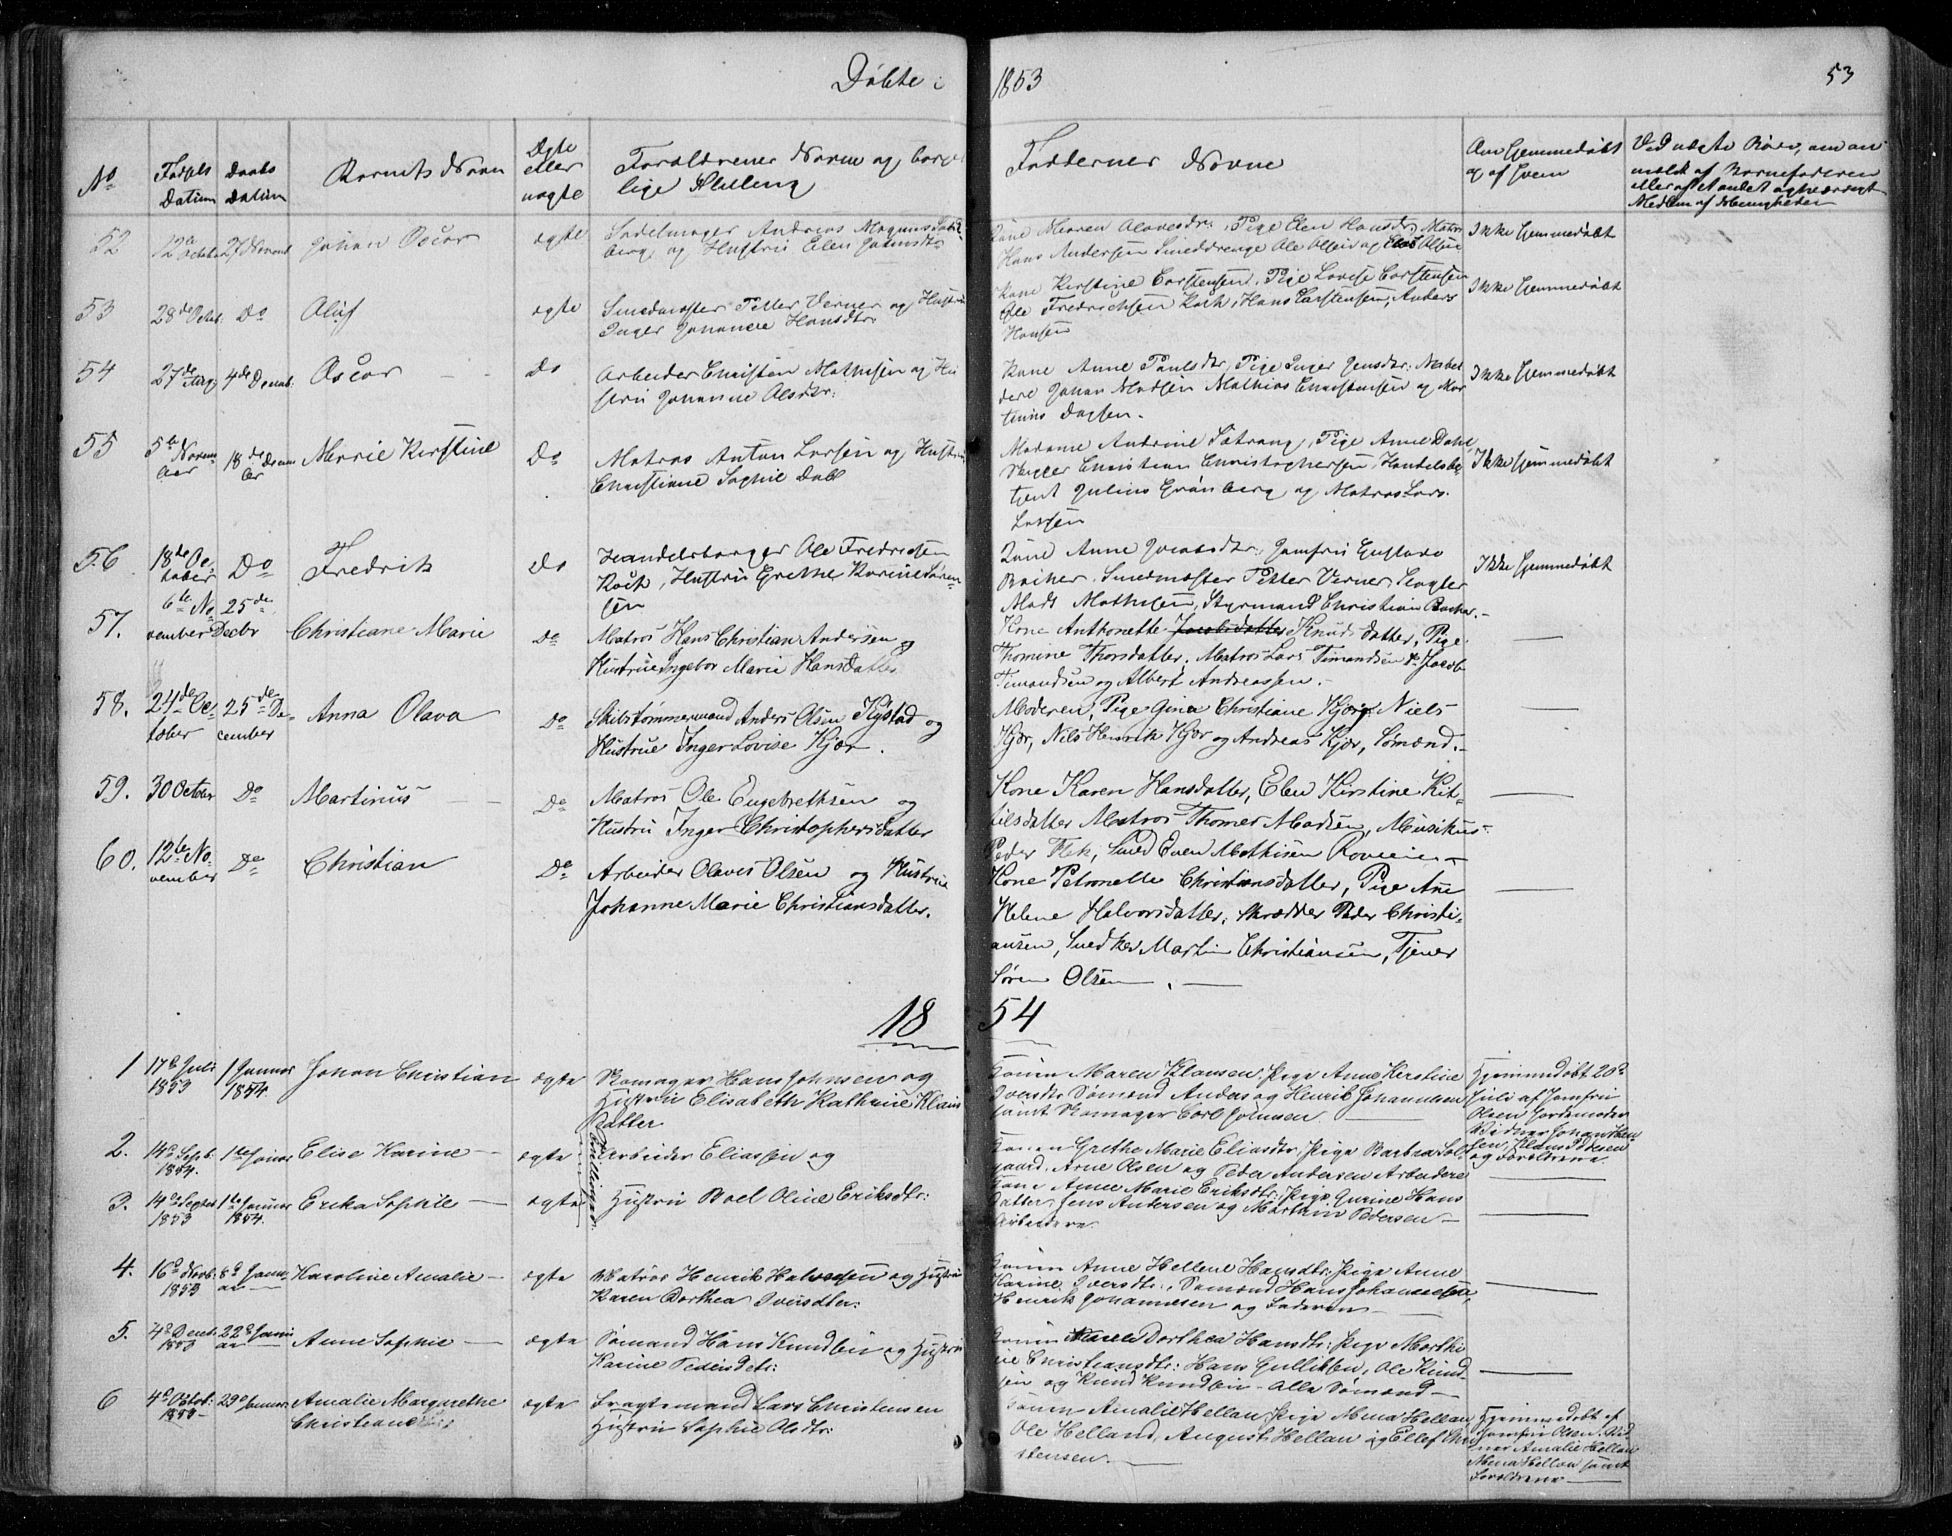 Døbte i 1853
53
No
Fødsels Datum
Daabs Datum
Barnets Navn
Ægte eller uægte
Forældrenes Navne og borgerlige Stilling
Faddernes Navne
Om hjemmedøbt og af hvem
Ved uægte Børn, om anmeldt af Barnefaderen eller af et andet
Medlem af Menigheden
52 12te Octob 27 Novemb Johan Oscar ægte Sadelmager Andreas Magnus
berg og Hustru Elen Hansdtr
Kone Maren Olavesdr, Pige Elen Hansdr, Matros
Hans Andersen Smeddrenge Ole Olsen og Olsen
Ikke hjemmedøbt
53 28de Octob. Do Oluf ægte Smedmester Petter Verner og Hustru
Inger Johanne Hansdtr
Kone Kirstine Carstensen, Pige Lovise Carstensen
Ole Fredrichsen Kock, Hans Carstensen, Anders
Hansen
Ikke hjemmedøbt
54 27de 4de Decemb. Oscar Do Arbeider Christen Mathisen og Hu
stru Johanne Olsdtr:
Kone Anne Paulsdtr, Pige Inger Jensdtr:
Johan Madsen Mathias Christensen og Mar
tinus
Ikke hjemmedøbt
55 5te Novem
ber 18de Decem
ber Marie Kirstine Do Matros Anton Larsen og Hustru
Christiane Sophie Dahl
Madame Andrine Satrang, Pige Anne Dahl
Christian Christophersen, Handelsbe
tjent Julius Grønberg og Matros Lars
Larsen
Ikke hjemmedøbt
56 18de Oc
tober Do Fredrik Do Handelsborger Ole Fredrichsen
Kock, Hustru Grethe Karine Søren
sen
Kone Anne Jacobsdtr, Jomfru Gustava
Smedmester Petter Verner, Slagter
Mads Mathisen, Styrmand Christian
Ikke hjemmedøbt
57. 6te No
vember 25de
Decbr Christiane Marie Do Matros Hans Christian Andersen og
Hustrue Ingebor Marie Hansdatter
Kone Anthonette Jacobsdatter Knudsdatter, Pige
Thomine Thorsdatter, Matros Lars Simondsen, Do Jacob
Simondsen og Albert Andreassen.
58. 24de Oc
tober 25de De
cember Anna Olava Do Skibstømmermand Anders Olsen Rystad og
Hustrue Inger Lovise Kjær.
Moderen, Pige Gina Christiane Kjær, Niels
Kjær, Nils Henrik Kjær og Andreas Kjær, Sømænd.
59. 30 October Do Martinus Do Matros Ole Engebrethsen og
Hustru Inger Christophersdatter
Kone Karen Hansdatter, Elen Kirstine Kit
tilsdatter Matros Thomes Madsen, Musikus
Peder Flek, Smed Even Mathisen
60. 12te No
vember Do Christian Do Arbeider Olaves Olsen og Hustrue
Johanne Marie Christiansdatter.
Kone Petronelle Christiansdatter, Pige Ane
Helene Halvorsdatter, Skrædder Peder Christi
ansen, Snedker Martin Christiansen, Tjener
Søren Olsen.
1854
1 17de Juli
1853 1 Januar
1854. Johan Christian ægte Skomager Hans Johnsen og
Hustru Elisabeth Kathrine Klaus
Datter
Konen Maren Klausen, Pige Anne Kirstine
Iversdtr Sømænd Anders og Henrik Johannesen
samt Skomager Carl Johnsen.
Hjemmedøbt 20d
Juli af Jomfru
Olsen Jordemoder
Vidner Johan
sen, Klaus Pedersen
og Forældrene.
2. 14de Septb.
1854. 1te Januar Elise Karine ægte Tvillinger Arbeider Eliassen og
Konen Grethe Marie Eliasdtr, Pige Barbra Sol
gaard, Arne Olsen og Peder Andersen Arbeidere
3. 14de Septbr
1853 1te Januar
1854. Erika Sophie ægte Hustru Boel Oline Eriksdtr:
Kone Anne Marie Eriksdtr, Pige Gurine Hans
Datter, Jens Andersen og Martin Pedersen
Arbeidere
4. 16d Novb.
1853 8d Janu
ar Karoline Amalie ægte Matros Henrik Halvorsen og Hustru
Karen Dorthea Iversdtr:
Konen Anne Hellene Hansdtr: Pige Anne
Karine Iversdtr:, Sømænd Hans Johannesen,
Henrik Johannesen og Faderen
5. 4d Decb.
1853 22d Janu
ar Anne Sophie ægte Sømand Hans Knudsen og Hustru
Karine Pedersdtr:
Konen Maren Dorthea Hansdtr: Pige Marthi
ne Christiansdtr: Hans Gulliksen, Ole Knud
sen og Knud Knudsen - Alle Sømænd
6 4d Octob:
1853 29d Januar Amalie Margrethe
Christiane ægte Fragtemand Lars Christensen
Hustru Sophie Olsdtr:
Konen Amalie Hellan, Pige Mena Hellan
Ole Helland, August Hellan og Ellef Chri
stensen.
Hjemmedøbt af
Jomfru Olsen. Vid
ner Amalie Hellan
Mena Hellan samt
Forældrene